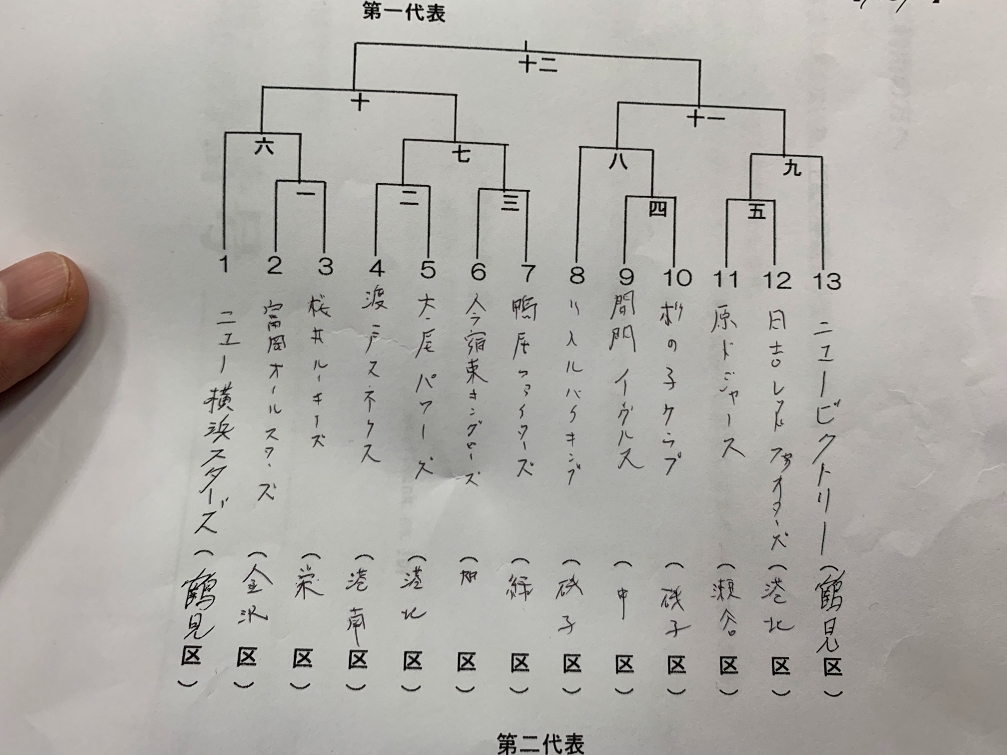 第一代表
十二
十
十一
六
七
八
九
一
二
三
四
五
1 2 3 4 5 6 7 8 9 10 11 12 13
ニュー横浜スターズ(鶴見区)
富岡オールスターズ(金沢区)
桜井ルーキーズ(栄区)
渡戸スネークス(港南区)
大尾パワーズ(港北区)
今宿東キングダーズ(旭区)
鴨居ファイターズ(緑区)
リトルバイキング(磯子区)
間門イーグルス(中区)
杉の子クラブ(磯子区)
原ドジャース(瀬谷区)
日吉レッドファイターズ(港北区)
ニュービクトリー(鶴見区)
第二代表